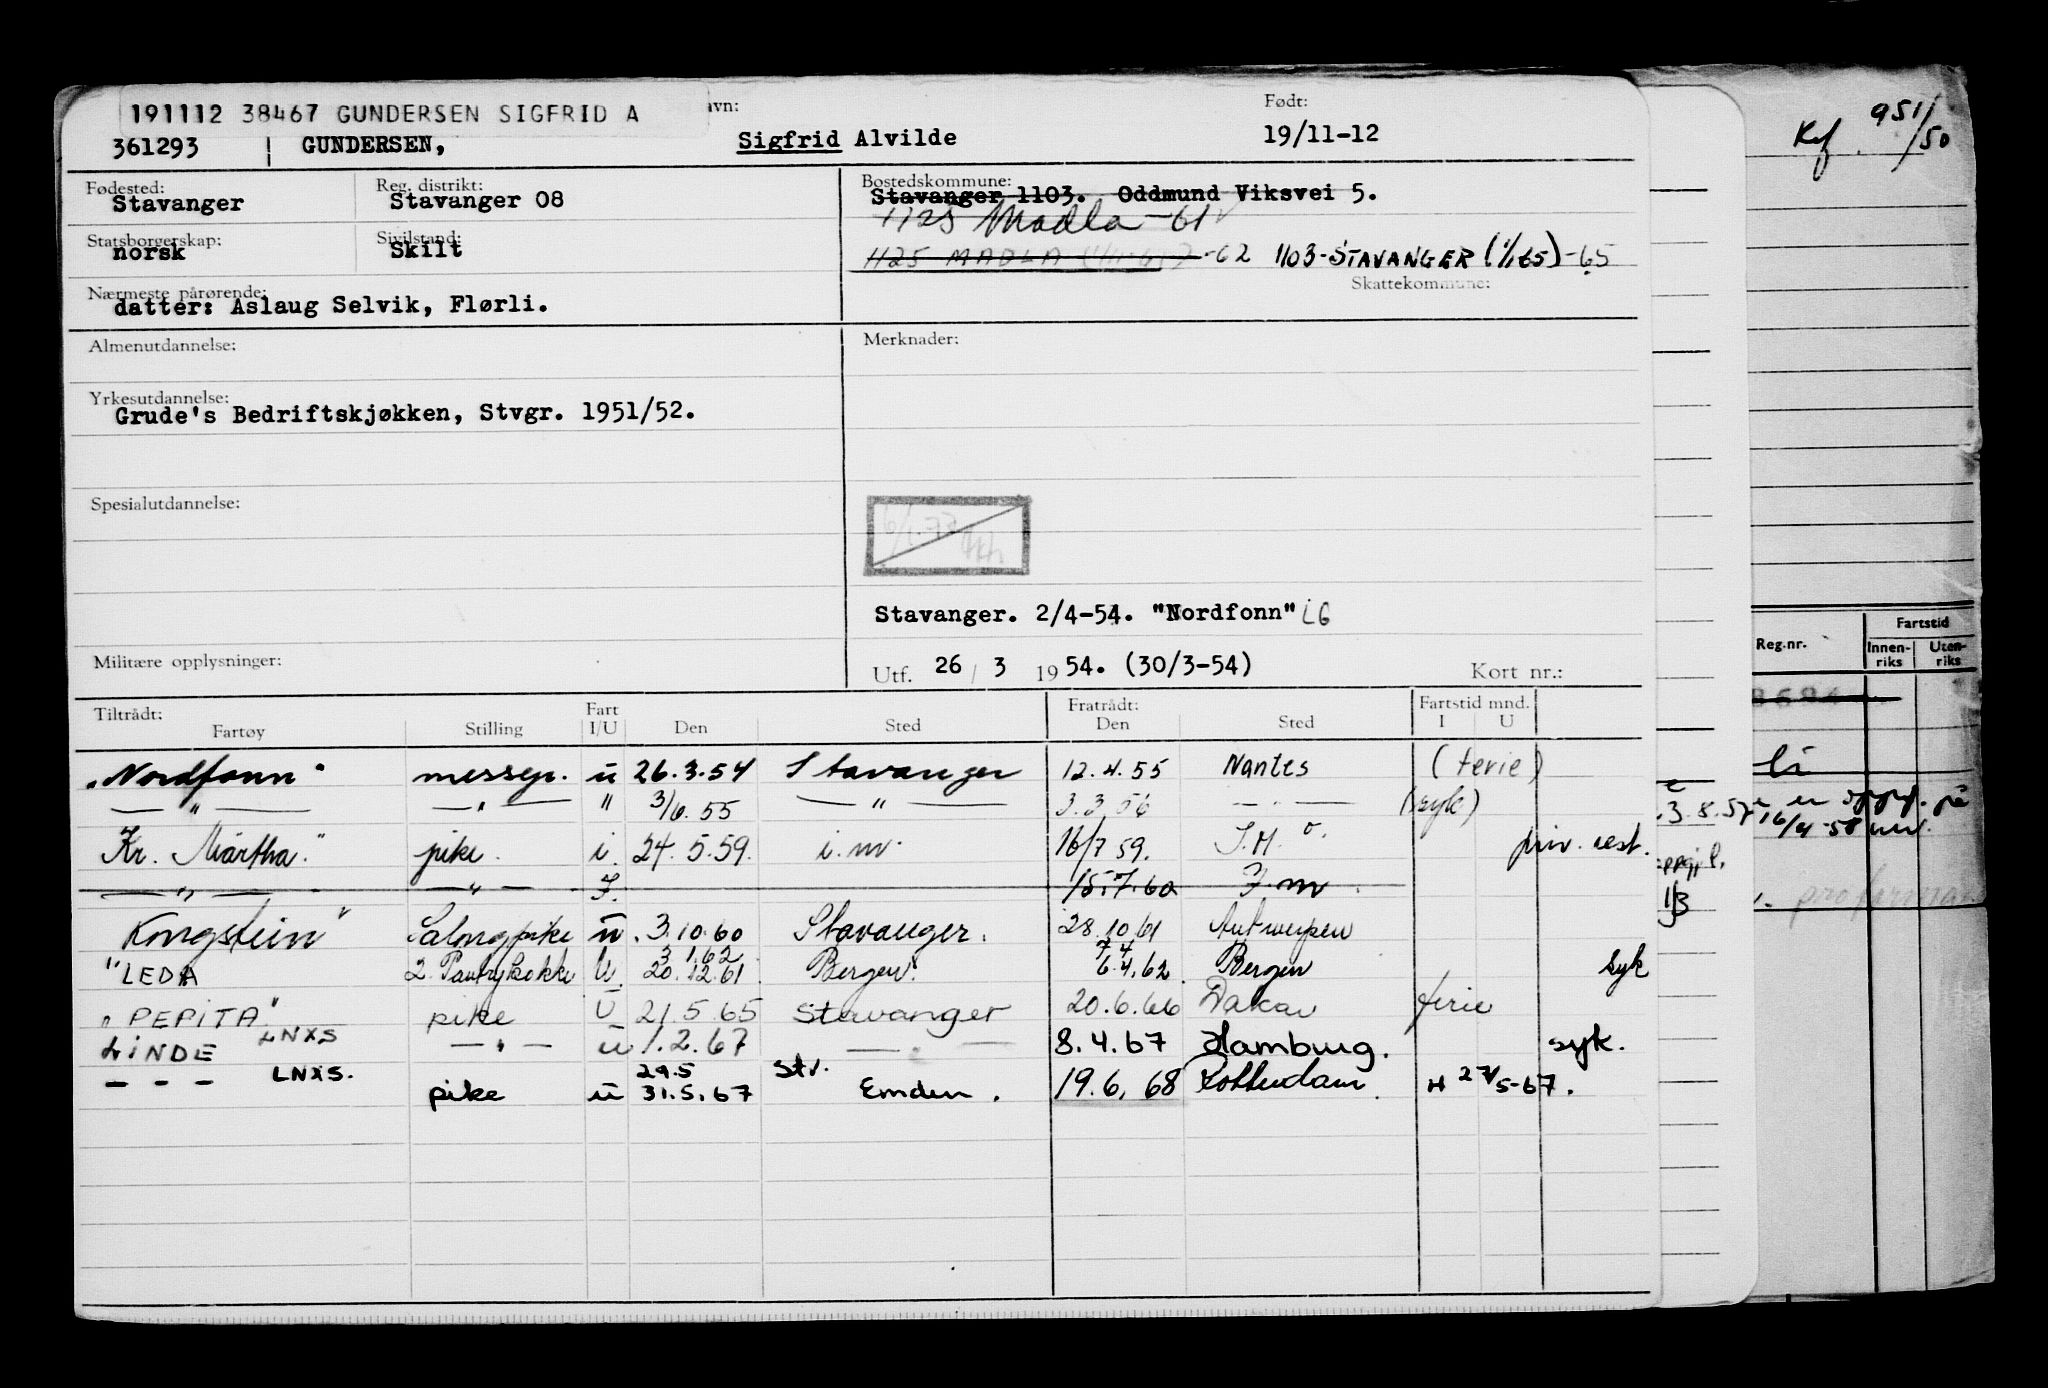 191112 38467 GUNDERSEN SIGFRID A
avn: Født:
361293 GUNDERSEN, Sigfrid Alvilde 19/11-12
Fødested: Reg. distrikt: Bostedskommune:
Stavanger Stavanger 08 Stavanger 1103. Oddmund Viksvei 5.
1125 Madla -61
Statsborgerskap: Sivilstand:
norsk Skilt 1125 MADLA -62 1103-STAVANGER (1/1 65)-65
Skattekommune:
Nærmeste pårørende:
datter: Aslaug Selvik, Flørli.
Almenutdannelse: Merknader:
Yrkesutdannelse:
Grude's Bedriftskjøkken, Stvgr. 1951/52.
Spesialutdannelse:
6/1.73
Stavanger. 2/4-54. "Nordfonn" LG
Militære opplysninger: Utf. 26 / 3 1954. (30/3-54) Kort nr.:
Tiltrådt: Fart Fratrådt: Fartstid mnd.
Fartøy Stilling I/U Den Sted Den Sted I U
"Nordfonn" messep. u 26.3.54 Stavanger 12.4.55 Nantes (ferie)
— " — — " — " 3/6.55 — " — 3.3.56 — " — (syk)
Kr. Märtha" pike. i. 24.5.59. i.m. 16/7 59. priv. rest.
— " — — " — I. 15.7.60 I.m.
Kongstein" Salongpike u. 3.10.60 Stavanger. 28.10.61 Antwerpen
3.1.62 7.4
"LEDA 2. Pantrykokke U. 20.12.61. Bergen. 6.4.62 Bergen syk
"PEPITA" pike U 21.5.65 Stavanger 20.6.66 Dakar ferie
LINDE LNXS — " — u 1.2.67 — " — 8.4.67 Hamburg. syk.
29.5 Stv.
- - - LNXS. pike u 31.5.67 Emden. 19.6.68 Rotterdam H 27/5-67.
Kf. 951/50
Fartstid
Reg.nr. Innen-riks Uten-riks
8684
.3.8.57
16/4-58
1/3
proforma